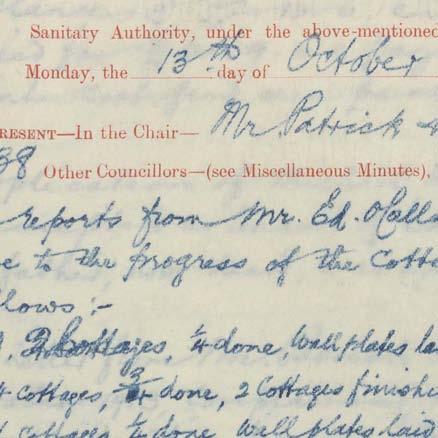 Sanitary Authority, under the above-mentioned
Monday, the 13th day of October
PRESENT—In the Chair— Mr Patrick
38 Other Councillors—(see Miscellaneous Minutes),
reports from Mr. Ed. O'Calla
to the progress of the Cotta
lows :-
2 Cottages, 1/4 done, wall plates la
4 cottages, 3/4 done, 2 cottages finishe
cottages, 1/4 done wall plates laid